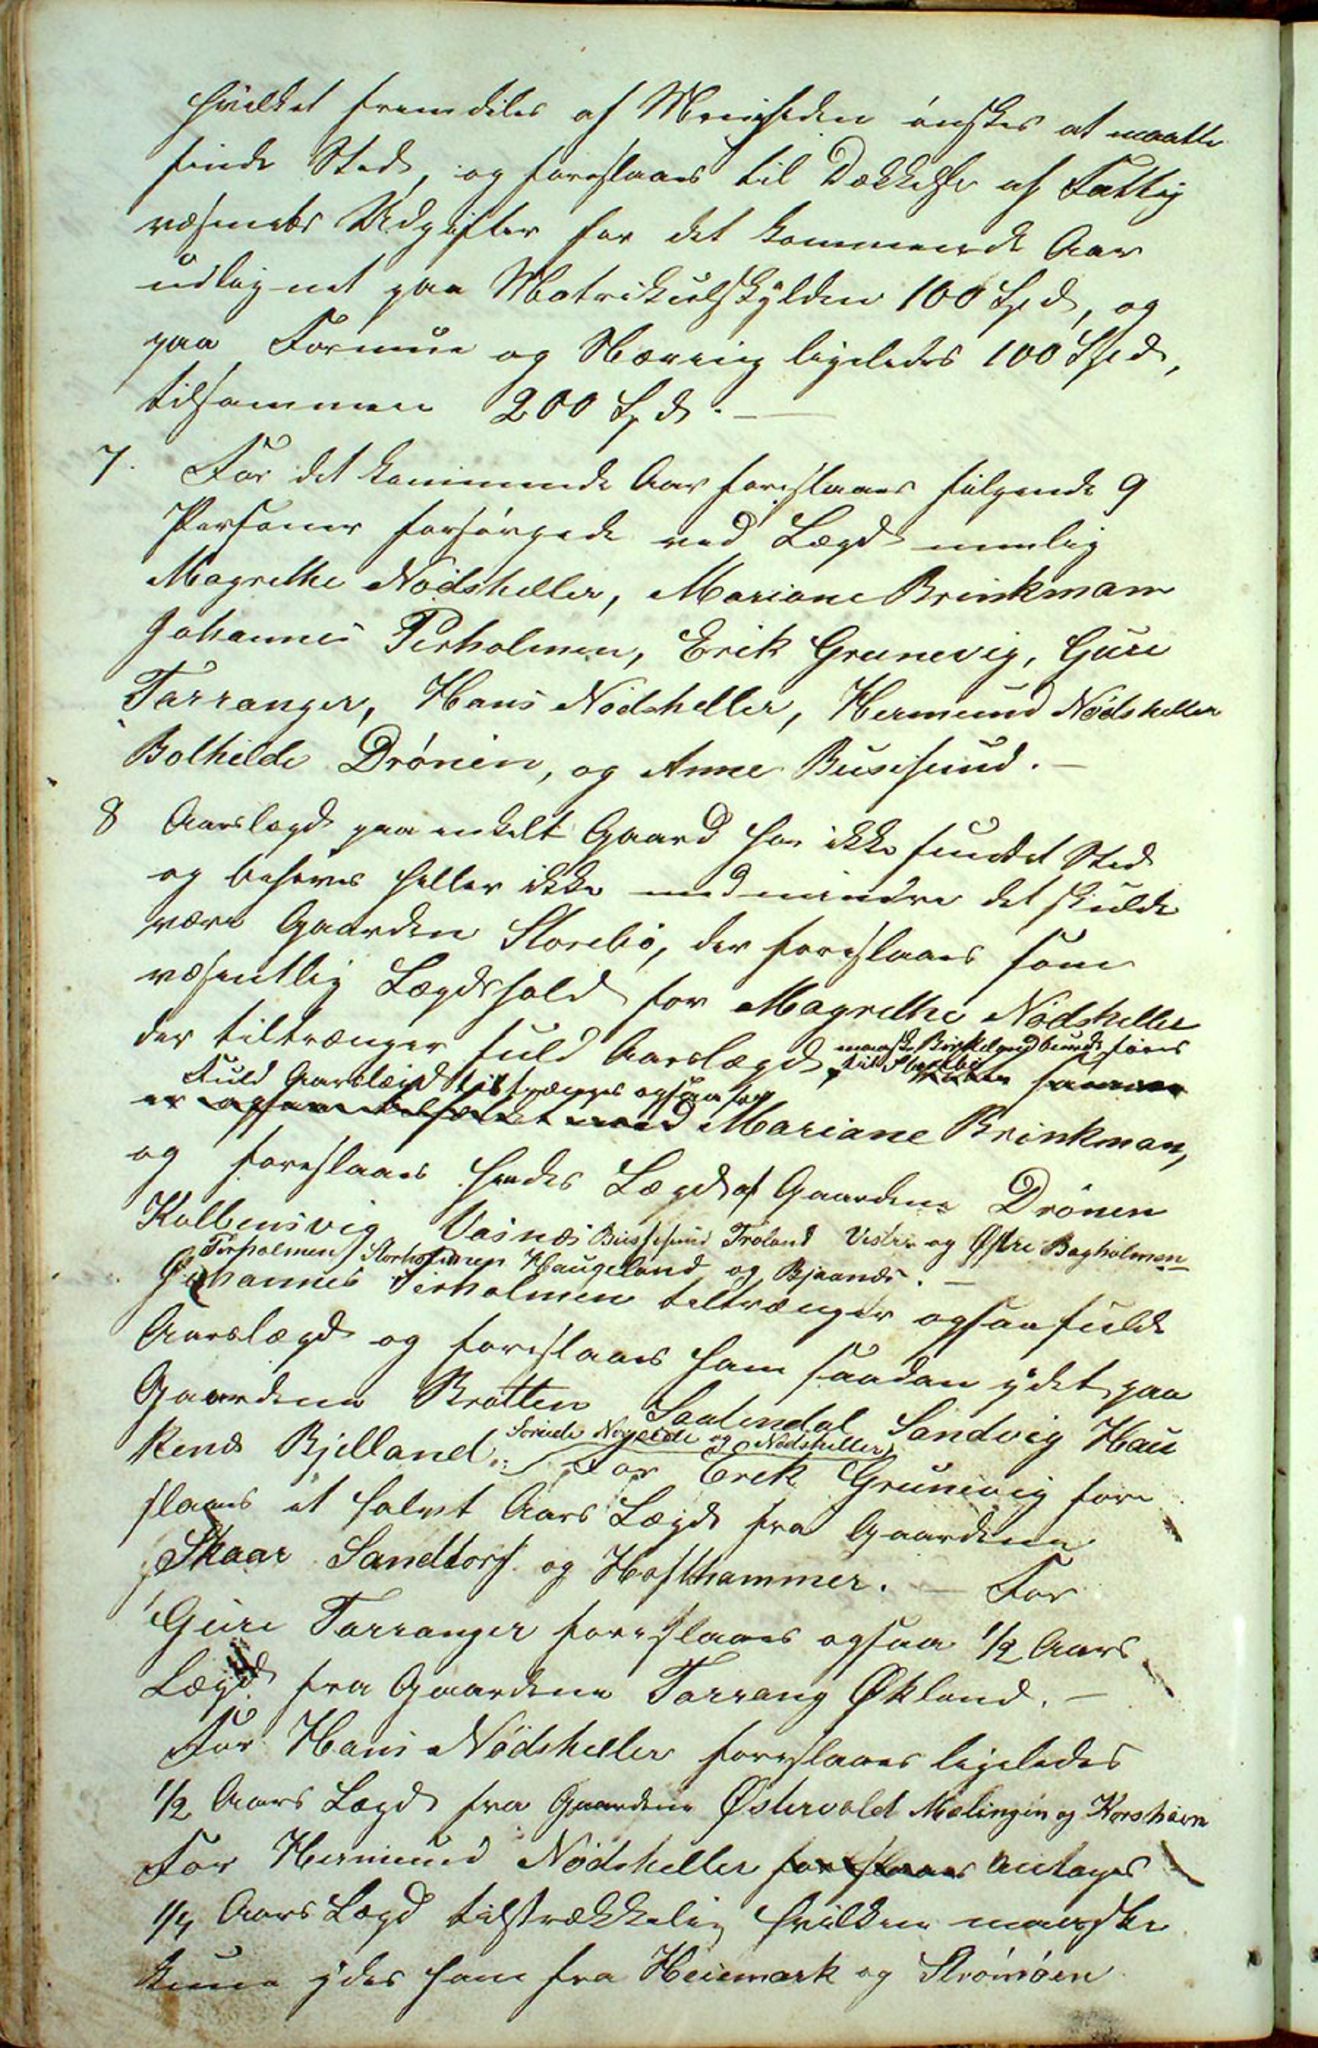 hvilket fremdeles af Menigheden ønskes at maatte
finde Sted, og foreslaaes til Dækkelse af Fattig
væsenets Udgifter for det kommende Aar
udlignet paa Matrikulskylden 100 Spd, og
paa Formue og Næring ligeledes 100 Spd,
tilsammen 200 Spd. —
7. For det kommende Aar foreslaaes følgende 9
Personer forsørgede ved Lægd nemlig
Magrethe Nödsheller, Mariane Brinkmann
Johannes Perholmen, Erik Grunevig, Guri
Tarranger, Hans Nödsheller, Hermund Nödsheller
Bolhilde Drönen, og Anne Busesund. —
8 Aarslægd paa enkelt Gaard har ikke fundet Sted
og behøves heller ikke medmindre det skulde
være Gaarden Storebö, der foreslaaes som
væsentlig Lægdshold for Magrethe Nödsheller
der tiltrænger fuld Aarslægd maaske Birkeland kunde føies
til Storebö samme
Fuld Aarslægd tiltrænges ogsaa for
er ogsaa med Mariane Brinkman,
og foreslaaes hendes Lægd af Gaardene Drönen
Kolbensvig Vasnæs Bussesund Troland Vestre og Østre Bagholmen
Perholmen Storholmen Haugeland og Bjaanæs. —
Johannes Perholmen tiltrænger ogsaa fuld
Aarslægd og foreslaaes ham saadan ydet paa
Gaardene Bratten Sadendal Sandvig Hau
kenæs Bjelland. Foruden og Nödsheller
For Erik Grunevig fore
slaaes et halvt Aars Lægd fra Gaardene
Skaar Sandtorf og Hofshammer. — For
Guri Tarranger foreslaaes ogsaa 1/2 Aars
Lægd fra Gaardene Tarrang Økland. —
For Hans Nödsheller foreslaaes ligeledes
1/2 Aars Lægd fra Gaardene Østervold Mælingen og Korshavn
For Hermund Nödsheller foreslaaes antages
1/4 Aars Lægd tilstrækkelig hvilken maaske
kune ydes ham fra Heiemark og Strömöen